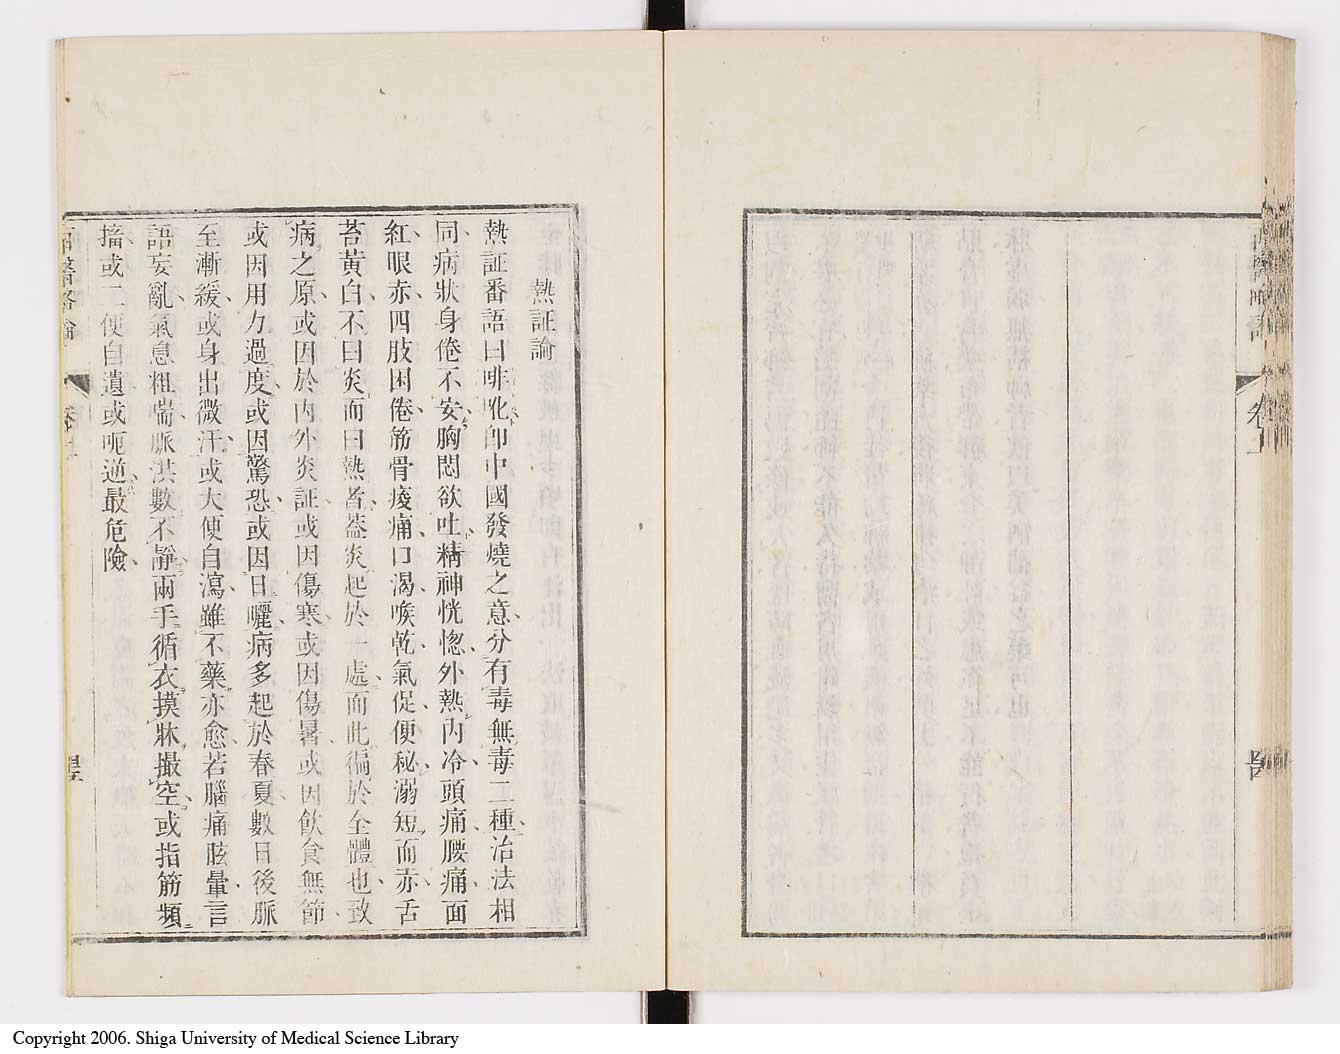 西醫略論
卷上
熱証論
熱証番語曰啡𠰷卽中國發燒之意分有毒無毒二種治法相
同病狀身倦不安胸悶欲吐精神恍惚外熱內冷頭痛腰痛面
紅眼赤四肢困倦筋骨痠痛口渴喉乾氣促便秘溺短而赤舌
苔黃白不曰炎而曰熱者葢炎起於一處而此徧於全體也致
病之原或因於內外炎証或因傷寒或因傷暑或因飲食無節
或因用力過度或因驚恐或因日曬病多起於春夏數日後脈
至漸緩或身出微汗或大便自瀉雖不藥亦愈若腦痛眩暈言
語妄亂氣息粗喘脈洪數不靜兩手循衣摸牀撮空或指筋頻
搐或二便自遺或呃逆最危險
西醫略論
卷上
Copyright 2006. Shiga University of Medical Science Library